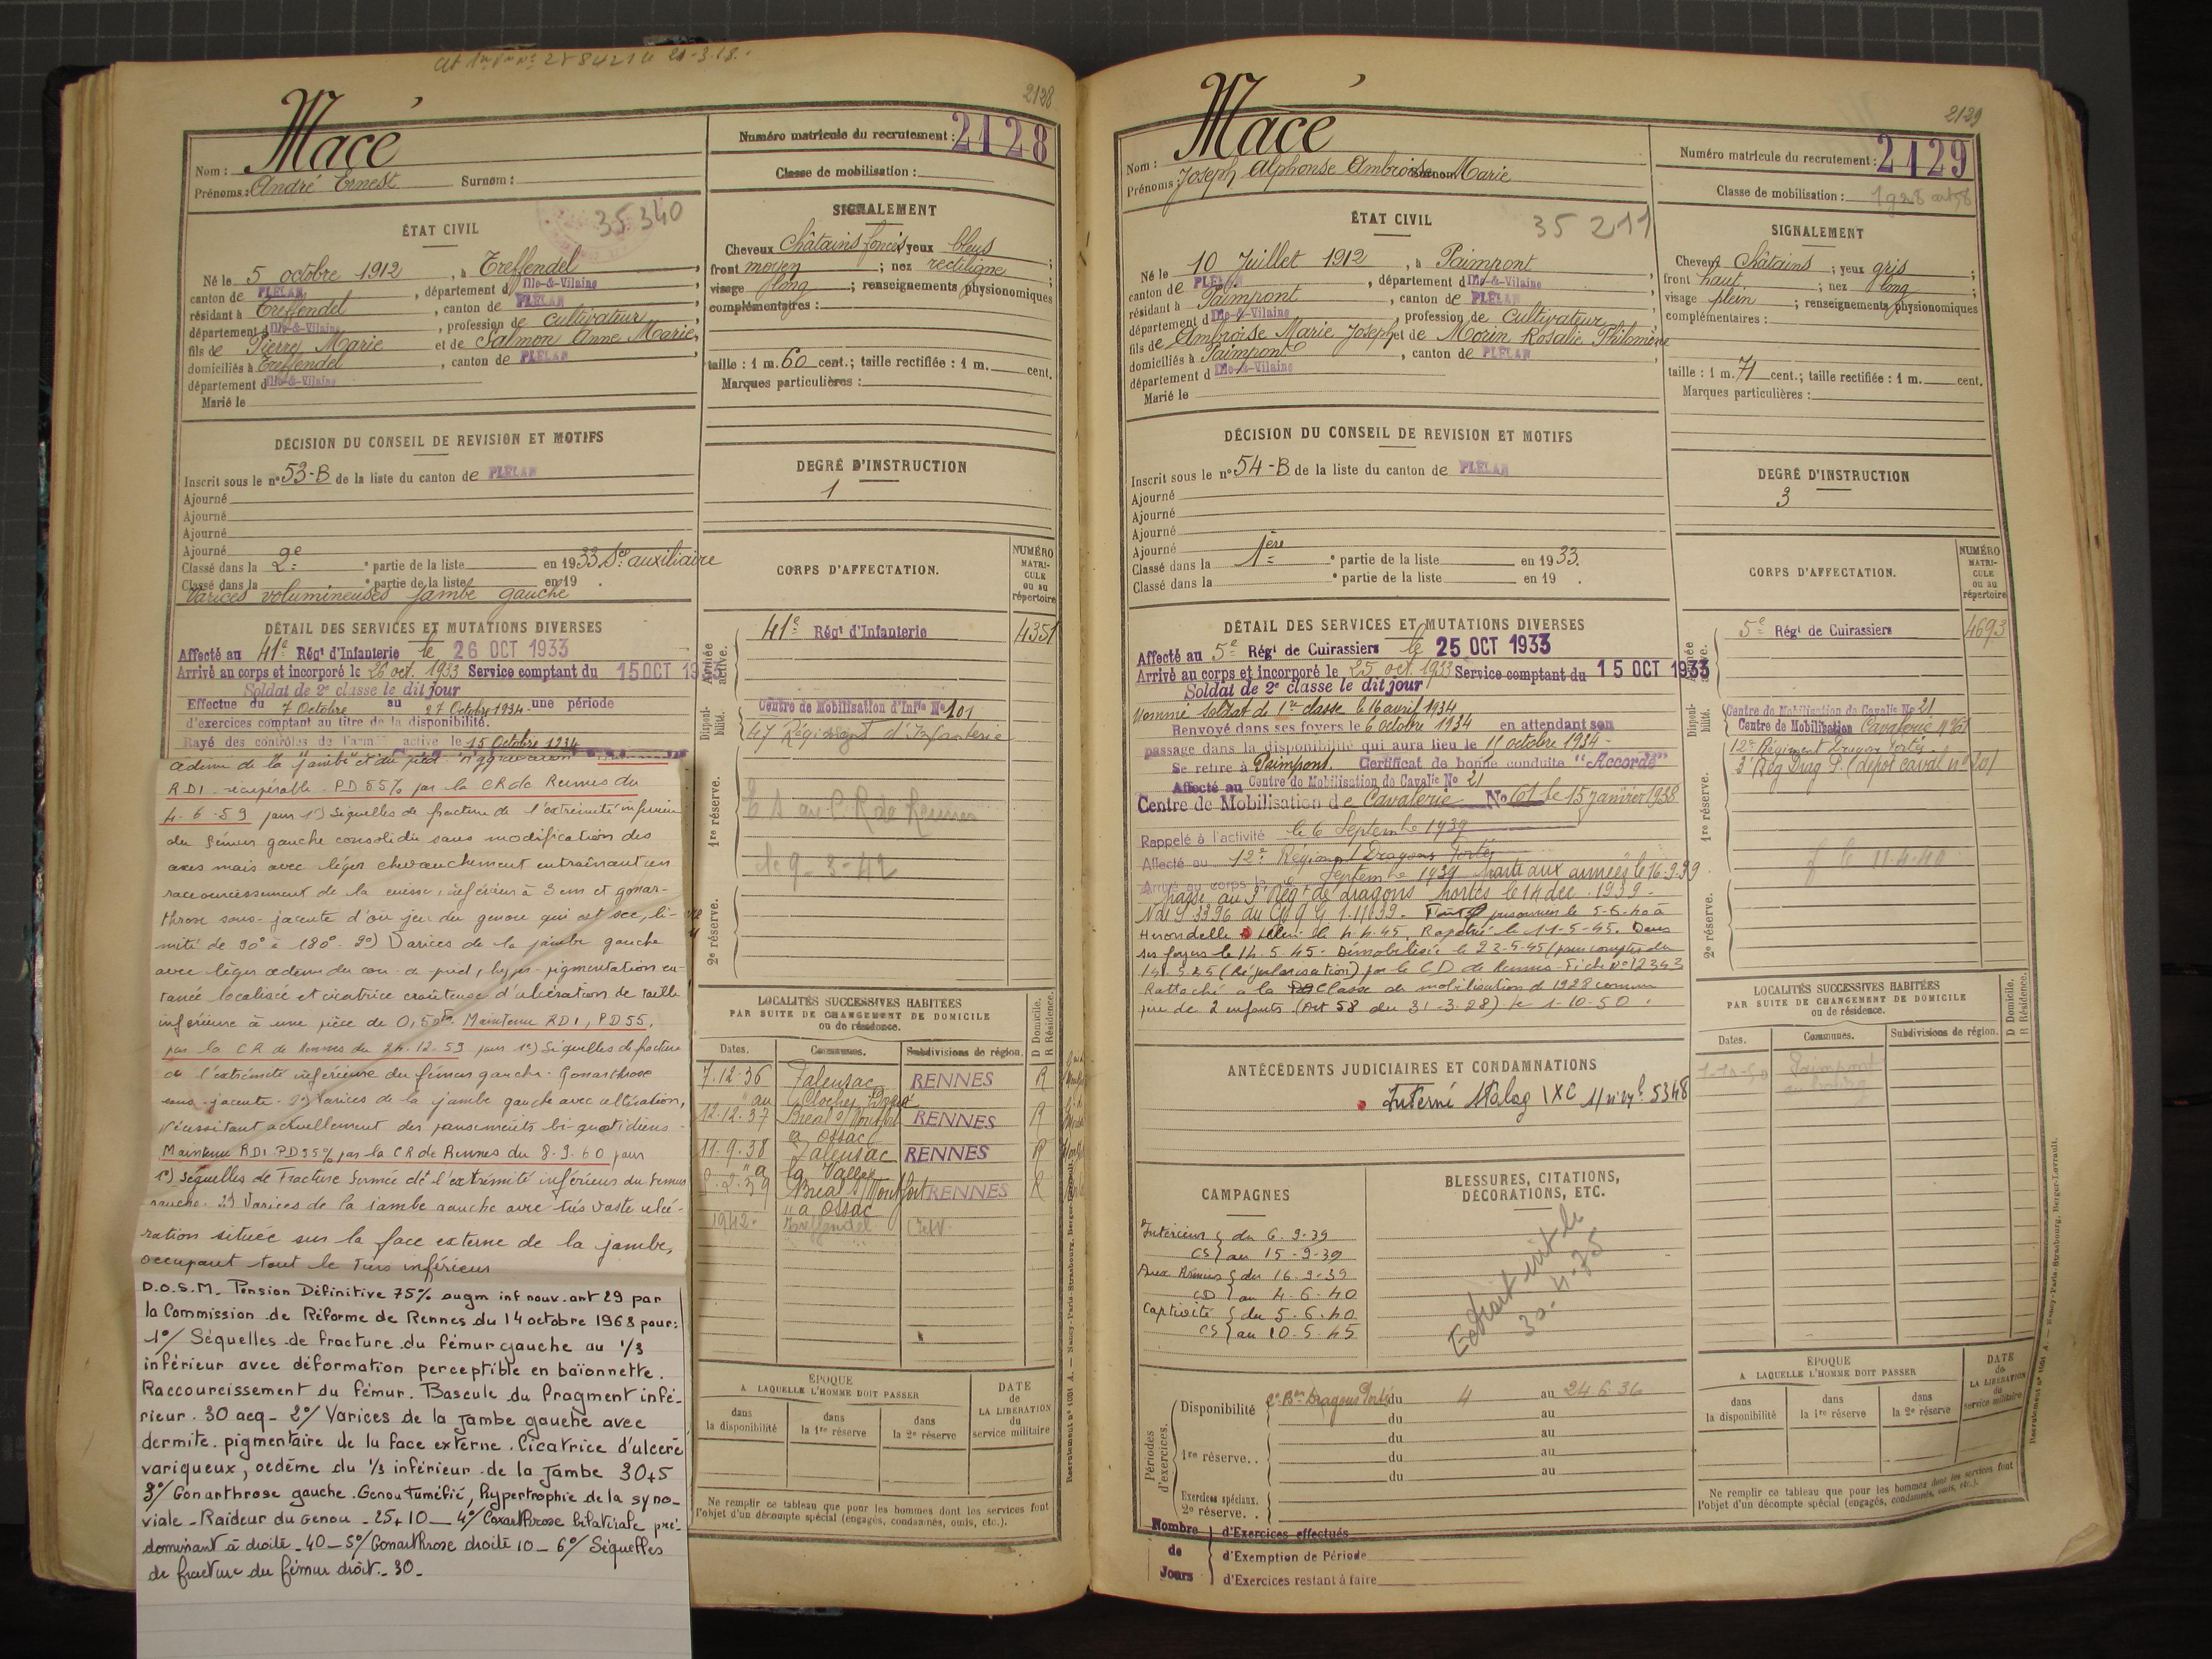 2128
Macé
Nom :
Prénoms : André Ernest Surnom :
Numéro matricule du recrutement : 2128
Classe de mobilisation :
35.340
ÉTAT CIVIL
Né le 5 octobre 1912, à Treffendel
canton de PLÉLAN, département d'Ille-&-Vilaine
résidant à Treffendel, canton de PLÉLAN
département d'Ille-&-Vilaine, profession de cultivateur
fils de Pierre Marie et de Salmon Anne Marie
domiciliés à Treffendel, canton de PLÉLAN
département d'Ille-&-Vilaine
Marié le
SIGNALEMENT
Cheveux Châtains foncés yeux bleus
front moyen ; nez rectiligne
visage long ; renseignements physionomiques
complémentaires :
taille : 1 m. 60 cent. ; taille rectifiée : 1 m. cent.
Marques particulières :
DÉCISION DU CONSEIL DE REVISION ET MOTIFS
Inscrit sous le n° 53-B de la liste du canton de PLÉLAN
Ajourné
Ajourné
Ajourné
Ajourné
Classé dans la 2e partie de la liste en 1933 Sce auxiliaire
Classé dans la partie de la liste en 19 .
Varices volumineuses jambe gauche
DEGRÉ D'INSTRUCTION
1
DÉTAIL DES SERVICES ET MUTATIONS DIVERSES
Affecté au 41e Régt d'Infanterie le 26 OCT 1933
Arrivé au corps et incorporé le 26 oct. 1933 Service comptant du 15 OCT 1933
Soldat de 2e classe le dit jour
Effectue du 7 Octobre au 27 Octobre 1934 une période
d'exercices comptant au titre de la disponibilité.
Rayé des contrôles de l'armée active le 15 Octobre 1934
oedème de la jambe et du pied
RDI récupérable - PD 55% par la CR de Rennes du
4-6-59 pour 1°) Séquelles de fracture de l'extrémité inférieure
du fémur gauche consolidée sans modification des
axes mais avec léger chevauchement entraînant un
raccourcissement de la cuisse, inférieur à 3 cm et gonar-
throse sous-jacente d'où jeu du genou qui est sec, li-
mité de 90° à 180°. 2°) Varices de la jambe gauche
avec léger oedème du cou-de-pied, hyper-pigmentation cu-
tanée localisée et cicatrice croûteuse d'ulcération de taille
inférieure à une pièce de 0,50F. Maintenu RDI, PD 55,
par la CR de Rennes du 24.12.59 pour 1°) Séquelles de fracture
de l'extrémité inférieure du fémur gauche. Gonarthrose
sous-jacente. 2°) Varices de la jambe gauche avec ulcération,
nécessitant actuellement des pansements bi-quotidiens.
Maintenu RDI PD 55% par la CR de Rennes du 8-9-60 pour
1°) Séquelles de Fracture fermée de l'extrémité inférieure du femur
gauche. 2°) Varices de la jambe gauche avec très vaste ulcé-
ration située sur la face externe de la jambe,
occupant tout le tiers inférieur
D.O.S.M. Pension Définitive 75% augm inf nouv. art 29 par
la Commission de Réforme de Rennes du 14 octobre 1968 pour :
1°/ Séquelles de fracture du fémur gauche au 1/3
inférieur avec déformation perceptible en baïonnette.
Raccourcissement du fémur. Bascule du fragment infé-
rieur. 30 acq - 2°/ Varices de la jambe gauche avec
dermite pigmentaire de la face externe. Cicatrice d'ulcère
variqueux, oedème du 1/3 inférieur de la jambe 30+5
3°/ Gonarthrose gauche. Genou tuméfié, hypertrophie de la syno-
viale - Raideur du Genou - 25+10 - 4°/ Coxarthrose bilatérale pré-
dominant à droite - 40 - 5°/ Gonarthrose droite 10 - 6°/ Séquelles
de fracture du fémur droit - 30 -
CORPS D'AFFECTATION.
NUMÉRO MATRICULE ou au répertoire
Armée active.
41e Régt d'Infanterie 4351
Disponibilité.
Centre de Mobilisation d'Infie N° 101
47 Régiment d'Infanterie
1re réserve.
le 9-3-42
2e réserve.
LOCALITÉS SUCCESSIVES HABITÉES
PAR SUITE DE CHANGEMENT DE DOMICILE
ou de résidence.
D Domicile. R Résidence.
Dates. Communes. Subdivisions de région.
7.12.36 Talensac RENNES R
au Clocher
12.12.37 Bréal s/ Montfort RENNES R
à Ossac
11.9.38 Talensac RENNES R
à la Vallée
Bréal s/ Montfort RENNES R
à Ossac
1942 Treffendel
ÉPOQUE
A LAQUELLE L'HOMME DOIT PASSER
dans la disponibilité
dans la 1re réserve
dans la 2e réserve
DATE de LA LIBÉRATION du service militaire
Ne remplir ce tableau que pour les hommes dont les services font
l'objet d'un décompte spécial (engagés, condamnés, omis, etc.).
2129
Macé
Nom :
Prénoms : Joseph Alphonse Ambroise Marie
Numéro matricule du recrutement : 2129
Classe de mobilisation : 1928 art 58
35 211
ÉTAT CIVIL
Né le 10 Juillet 1912, à Paimpont
canton de PLÉLAN, département d'Ille-&-Vilaine
résidant à Paimpont, canton de PLÉLAN
département d'Ille-&-Vilaine, profession de Cultivateur
fils de Ambroise Marie Joseph et de Morin Rosalie Philomène
domiciliés à Paimpont, canton de PLÉLAN
département d'Ille-&-Vilaine
Marié le
SIGNALEMENT
Cheveux Châtains ; yeux gris
front haut ; nez long
visage plein ; renseignements physionomiques
complémentaires :
taille : 1 m. 71 cent. ; taille rectifiée : 1 m. cent.
Marques particulières :
DÉCISION DU CONSEIL DE REVISION ET MOTIFS
Inscrit sous le n° 54-B de la liste du canton de PLÉLAN
Ajourné
Ajourné
Ajourné
Ajourné
Classé dans la 1ère partie de la liste en 1933.
Classé dans la partie de la liste en 19 .
DEGRÉ D'INSTRUCTION
3
DÉTAIL DES SERVICES ET MUTATIONS DIVERSES
Affecté au 5e Régt de Cuirassiers le 25 OCT 1933
Arrivé au corps et incorporé le 25 oct. 1933 Service comptant du 15 OCT 1933
Soldat de 2e classe le dit jour
Nommé soldat de 1re classe le 16 avril 1934
Renvoyé dans ses foyers le 6 octobre 1934 en attendant son
passage dans la disponibilité qui aura lieu le 15 octobre 1934
Se retire à Paimpont. Certificat de bonne conduite "Accordé"
Affecté au Centre de Mobilisation de Cavalie No 21
Centre de Mobilisation de Cavalerie No 61 le 15 janvier 1938
Rappelé à l'activité le 6 Septembre 1939
Affecté au 12e Régiment Dragons Portés
Arrivé au corps le Septembre 1939 Parti aux armées le 16.9.39
Passé au 3e Régt de dragons portés le 14 dec. 1939
Fait prisonnier le 5-6-40 à
Herondelle libéré le 4.4.45, Rapatrié le 11-5-45. Dans
ses foyers le 14.5.45. Démobilisé le 23-5-45 (pour compter du
14.5.45 (Régularisation) par le CD de Rennes. Fiche N° 12343
Rattaché à la classe de mobilisation de 1928 comme
père de 2 enfants (Art 58 du 31-3-28) le 1-10-50.
ANTÉCÉDENTS JUDICIAIRES ET CONDAMNATIONS
Interné Stalag IXC 5348
CAMPAGNES
Intérieur du 6-9-39
CS au 15-9-39
Aux Armées du 16-9-39
CD au 4-6-40
Captivité du 5-6-40
CS au 10-5-45
BLESSURES, CITATIONS,
DÉCORATIONS, ETC.
30-4-75
Périodes d'exercices.
Disponibilité Dragons Portés du 4 au 24 6 36
du au
du au
1re réserve. . du au
du au
du au
Exercices spéciaux.
2e réserve. .
Nombre de Jours
d'Exercices effectués
d'Exemption de Période
d'Exercices restant à faire
CORPS D'AFFECTATION.
NUMÉRO MATRICULE ou au répertoire
Armée active.
5e Régt de Cuirassiers 4693
Disponibilité.
Centre de Mobilisation de Cavalie No 21
Centre de Mobilisation Cavalerie N° 61
12e Régiment Dragons Portés
3e Rég Drag P. (dépôt caval n° 101
1re réserve.
2e réserve.
LOCALITÉS SUCCESSIVES HABITÉES
PAR SUITE DE CHANGEMENT DE DOMICILE
ou de résidence.
D Domicile. R Résidence.
Dates. Communes. Subdivisions de région.
1-10-50 Paimpont
au bourg
ÉPOQUE
A LAQUELLE L'HOMME DOIT PASSER
dans la disponibilité
dans la 1re réserve
dans la 2e réserve
DATE de LA LIBÉRATION du service militaire
Ne remplir ce tableau que pour les hommes dont les services font
l'objet d'un décompte spécial (engagés, condamnés, omis, etc.).